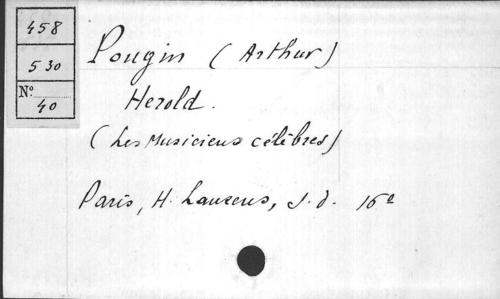 458
530
Nº
40
Pougin (Arthur)
Herold.
(Les Musiciens célèbres)
Paris, H. Laurens, s.d. 16º